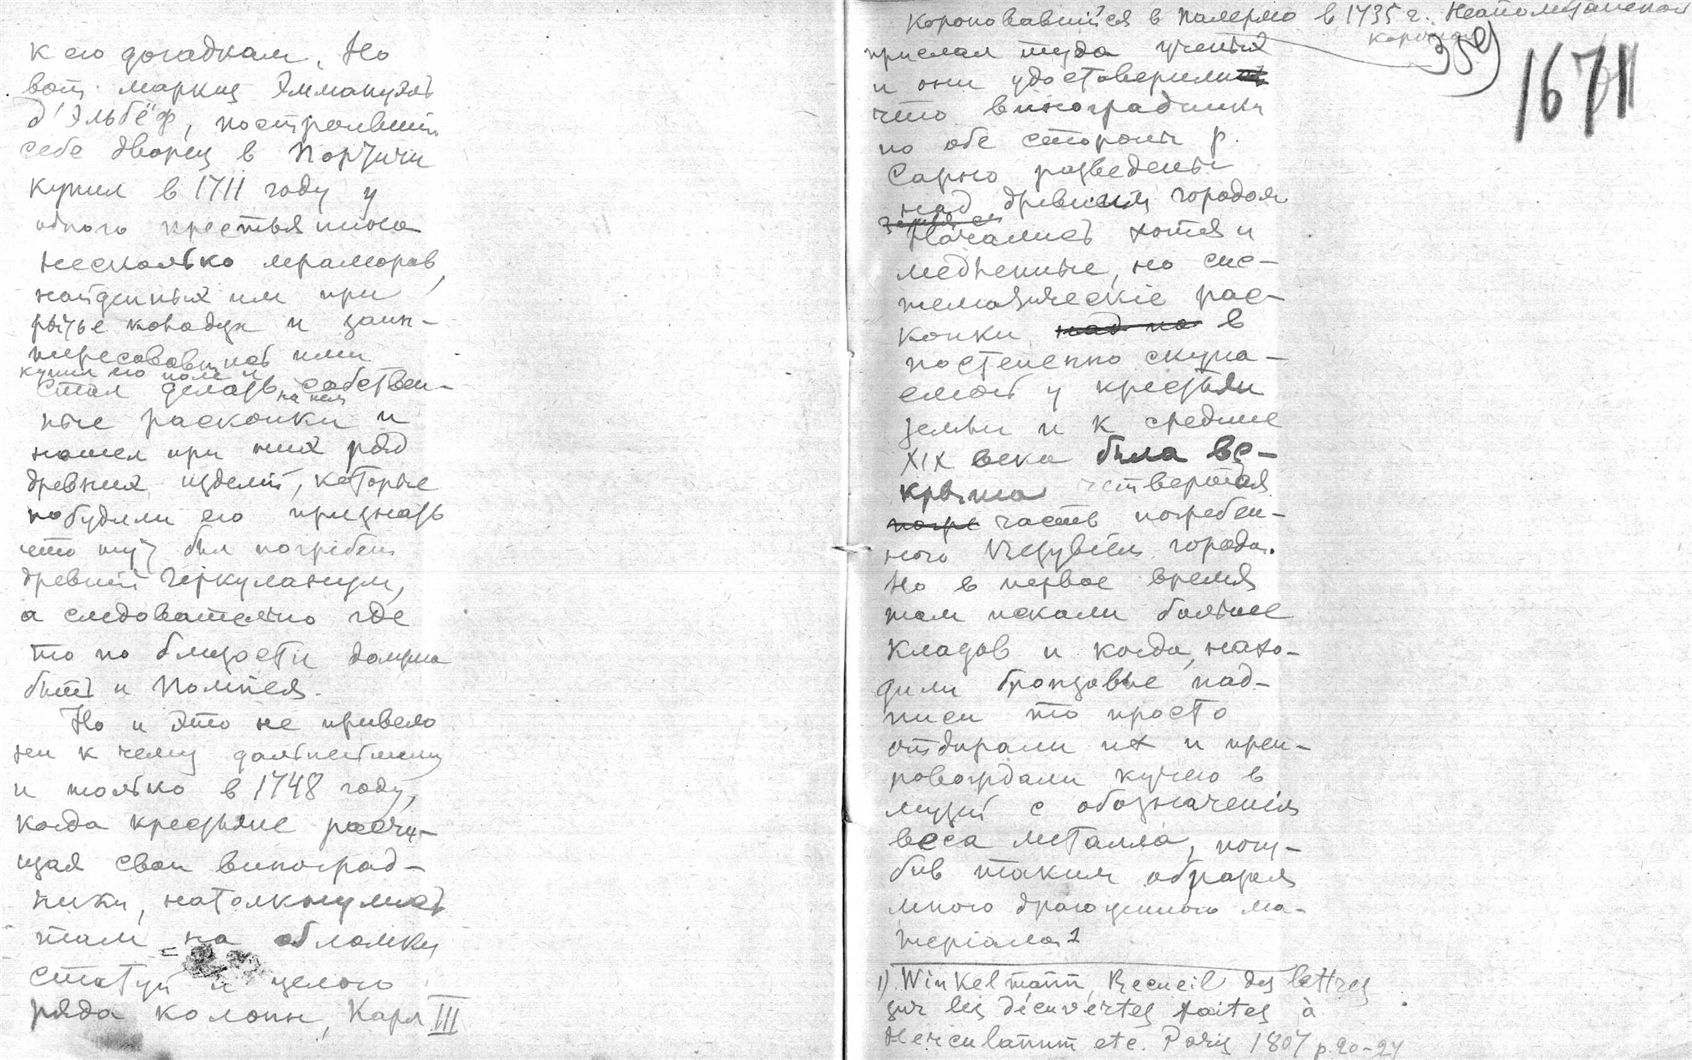 к его догадкам. Но
вот маркиз Эммануэль
д'Эльбёф, построивший
себе дворец в Портичи
купил в 1711 году у
одного крестьянина
несколько мраморов,
найденных им при
рытье колодца и заин-
тересовавшись ими
купил его поле и
стал делать на нем собствен-
ные раскопки и
нашел при них ряд
древних изделий, которые
побудили его признать
что тут был погребен
древний Геркуланум,
а следовательно где
то по близости должна
быть и Помпея.
Но и это не привело
ни к чему дальнейшему
и только в 1748 году,
когда крестьяне расчи-
щая свои виноград-
ники, натолкнулись
там на обломки
статуй и целого
ряда колонн, Карл III
короновавшийся в Палермо в 1735 г. Неаполитанской
короной
359
1671
прислал туда ученых
и они удостоверили
что виноградники
по обе стороны р.
Сарно разведены
над древним городом
Начались хотя и
медленные, но сис-
тематическiе рас-
копки над по в
постепенно скупа-
емой у крестьян
земли и к средине
XIX века была вс-
крыта четвертая
погре часть погребен-
ного Везувiем города.
Но в первое время
там искали больше
кладов и когда нахо-
дили бронзовые над-
писи то просто
отдирали их и преп-
ровождали кучею в
музей с обозначенiем
веса металла, погу-
бив таким образом
много драгоценного ма-
терiала 1
1) Winkelmann, Recueil des lettres
sur les découvertes faites à
Herculanum etc. Paris 1807 p. 20-24